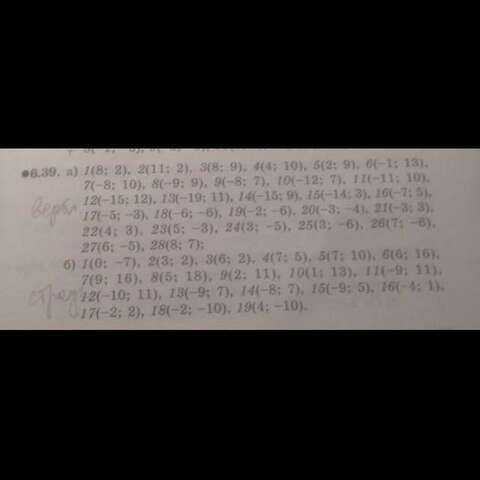 ●6.39. а) 1(8; 2), 2(11; 2), 3(8; 9), 4(4; 10), 5(2; 9), 6(−1; 13),
7(−8; 10), 8(−9; 9), 9(−8; 7), 10(−12; 7), 11(−11; 10),
12(−15; 12), 13(−19; 11), 14(−15; 9), 15(−14; 3), 16(−7; 5),
17(−5; −3), 18(−6; −6), 19(−2; −6), 20(−3; −4), 21(−3; 3),
22(4; 3), 23(5; −3), 24(3; −5), 25(3; −6), 26(7; −6),
27(6; −5), 28(8; 7);
б) 1(0; −7), 2(3; 2), 3(6; 2), 4(7; 5), 5(7; 10), 6(6; 16),
7(9; 16), 8(5; 18), 9(2; 11), 10(1; 13), 11(−9; 11),
12(−10; 11), 13(−9; 7), 14(−8; 7), 15(−9; 5), 16(−4; 1),
17(−2; 2), 18(−2; −10), 19(4; −10).